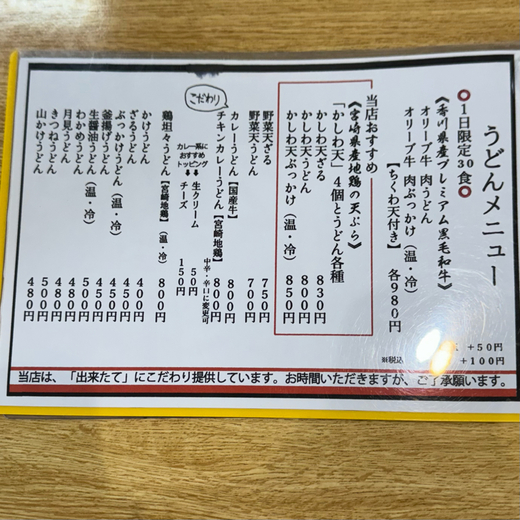 うどんメニュー
◎1日限定30食◎
《香川県産プレミアム黒毛和牛》
オリーブ牛 肉うどん
オリーブ牛 肉ぶっかけ(温・冷)
【ちくわ天付き】各980円
+50円
+100円
※税込
当店おすすめ
《宮崎県産地鶏の天ぷら》
「かしわ天」4個とうどん各種
かしわ天ざる 830円
かしわ天うどん 800円
かしわ天ぶっかけ(温・冷) 850円
野菜天ざる 750円
野菜天うどん 700円
こだわり
カレーうどん【国産牛】 800円
チキンカレーうどん【宮崎地鶏】 800円
中辛・辛口に変更可
カレー系におすすめトッピング
生クリーム 50円
チーズ 150円
鶏坦々うどん【宮崎地鶏】 800円
かけうどん 400円
ざるうどん 450円
ぶっかけうどん(温・冷) 450円
釜揚げうどん 450円
生醤油うどん(温・冷) 450円
わかめうどん 500円
月見うどん 480円
きつねうどん 500円
山かけうどん 480円
当店は、「出来たて」にこだわり提供しています。お時間いただきますが、ご了承願います。